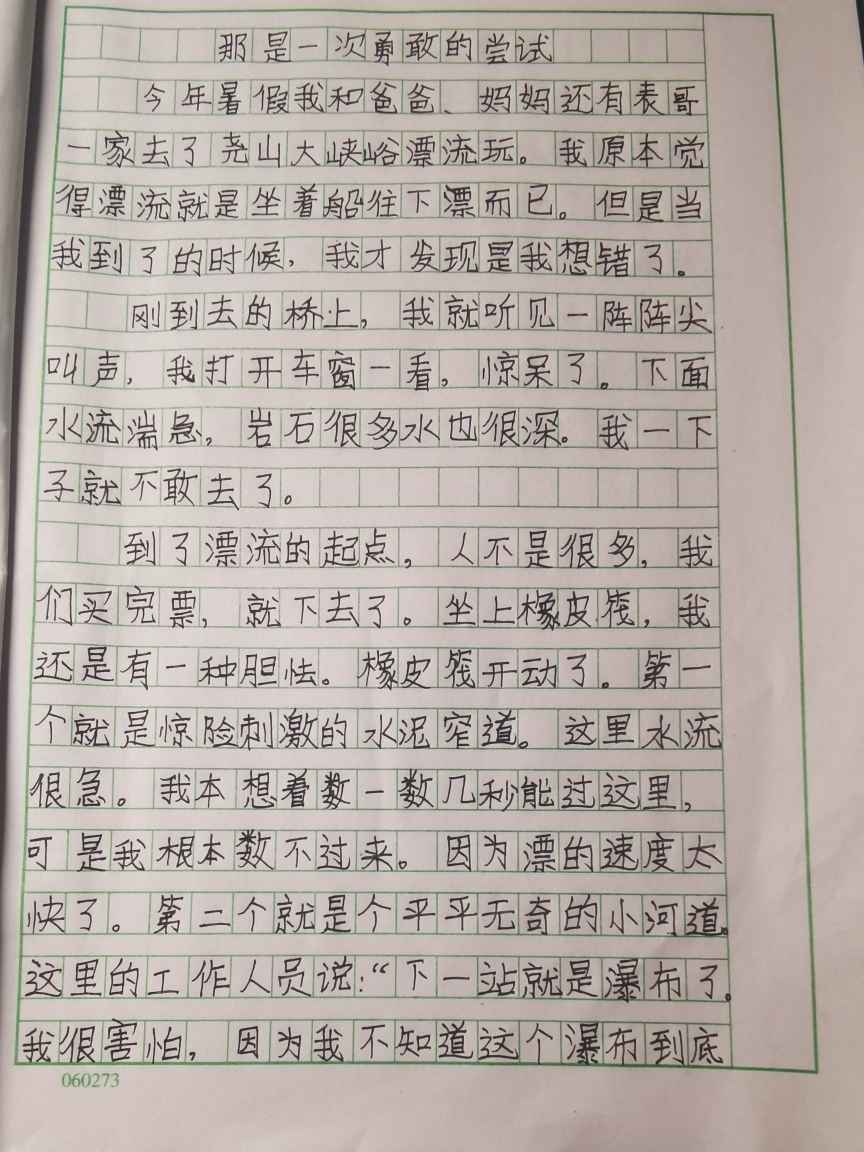 那是一次勇敢的尝试
今年暑假我和爸爸、妈妈还有表哥
一家去了尧山大峡峪漂流玩。我原本觉
得漂流就是坐着船往下漂而已。但是当
我到了的时候，我才发现是我想错了。
刚到去的桥上，我就听见一阵阵尖
叫声，我打开车窗一看，惊呆了。下面
水流湍急，岩石很多水也很深。我一下
子就不敢去了。
到了漂流的起点，人不是很多，我
们买完票，就下去了。坐上橡皮筏，我
还是有一种胆怯。橡皮筏开动了。第一
个就是惊险刺激的水泥窄道。这里水流
很急。我本想着数一数几秒能过这里，
可是我根本数不过来。因为漂的速度太
快了。第二个就是个平平无奇的小河道。
这里的工作人员说：“下一站就是瀑布了。
我很害怕，因为我不知道这个瀑布到底
060273